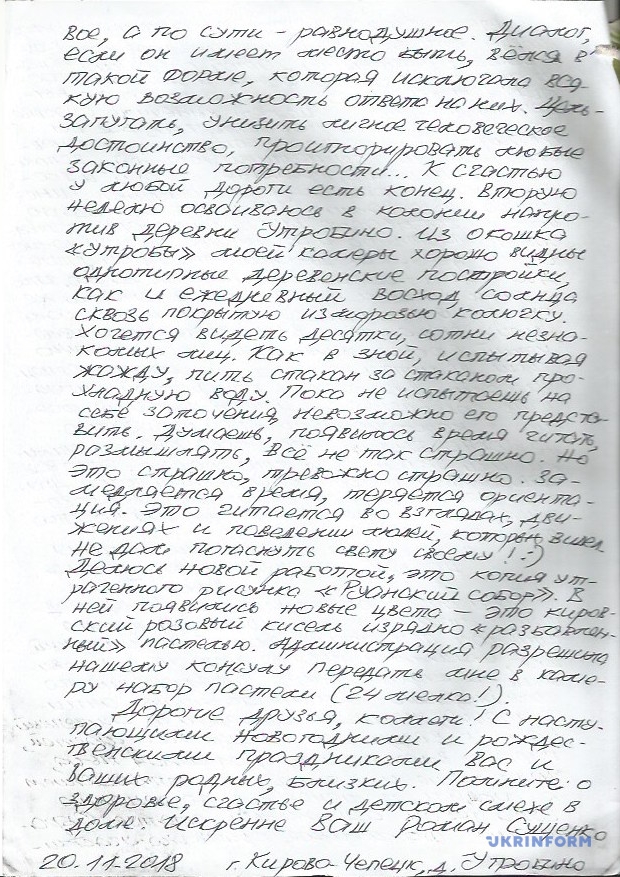 вое, а по сути - равнодушное. Диалог,
если он имеет место быть, вёлся в
такой форме, которая исключала вся-
кую возможность ответа на них. Цель-
запугать, унизить личное человеческое
достоинство, проигнорировать любые
законные потребности... К счастью
у любой дороги есть конец. Вторую
неделю осваиваюсь в колонии напро-
тив деревни Утробино. Из окошка
«утробы» моей камеры хорошо видны
однотипные деревенские постройки,
как и ежедневный восход солнца
сквозь покрытую изморозью колючку.
Хочется видеть десятки, сотни незна-
комых лиц. Как в зной, испытывая
жажду, пить стакан за стаканом про-
хладную воду. Пока не испытаешь на
себе заточения, невозможно его предста-
вить. Думаешь, появилось время читать,
размышлять, всё не так страшно. Но
это страшно, тревожно страшно. За-
медляется время, теряется ориента-
ция. Это читается во взглядах, дви-
жениях и поведении людей, которых видел.
Не дам погаснуть свету своему! :)
Делюсь новой работой, это копия ут-
раченного рисунка «Руанский собор». В
ней появились новые цвета – это киров-
ский розовый кисель изрядно «разбавлен-
ный» пастелью. Администрация разрешила
нашему консулу передать мне в каме-
ру набор пастели (24 мелка!).
Дорогие друзья, коллеги! С насту-
пающими новогодними и рождес-
твенскими праздниками Вас и
Ваших родных, близких. Помните о
здоровье, счастье и детском смехе в
доме. Искренне Ваш Роман Сущенко
UKRINFORM
20.11.2018 г. Кирово-Чепецк, д. Утробино